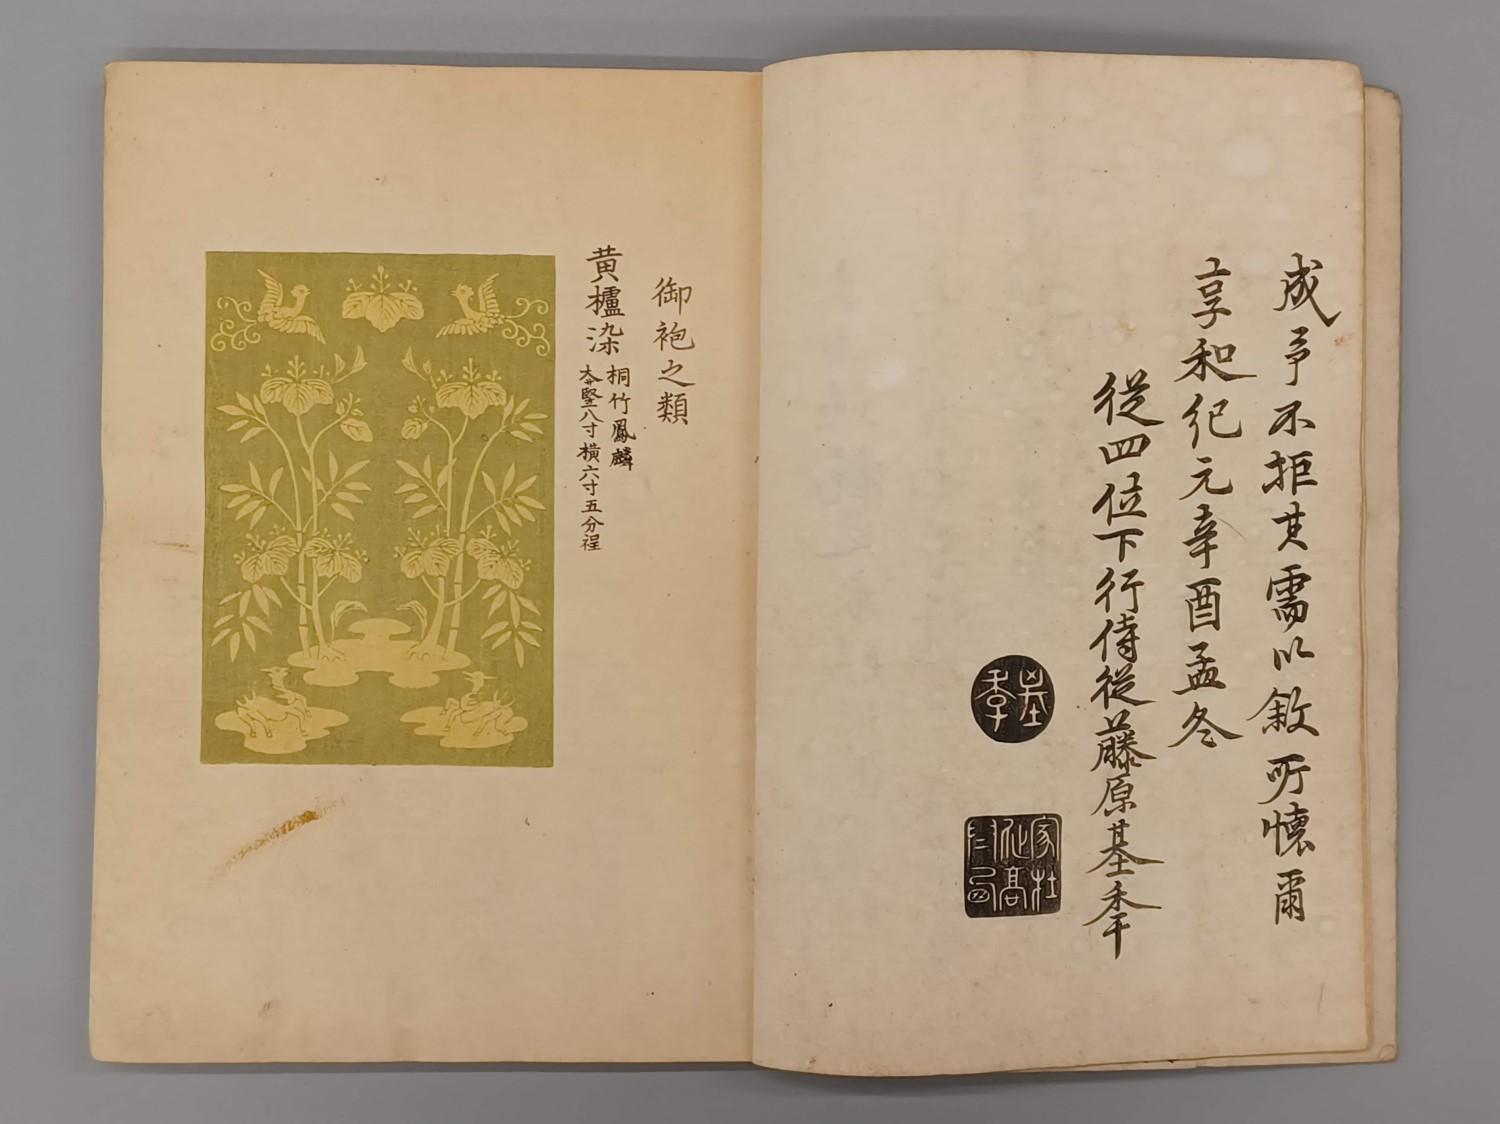 成予不拒其需以敘所懷爾
享和紀元辛酉孟冬
從四位下行侍從藤原基季
基季
御袍之類
黃櫨染
桐竹鳳麟
大サ竪八寸横六寸五分程